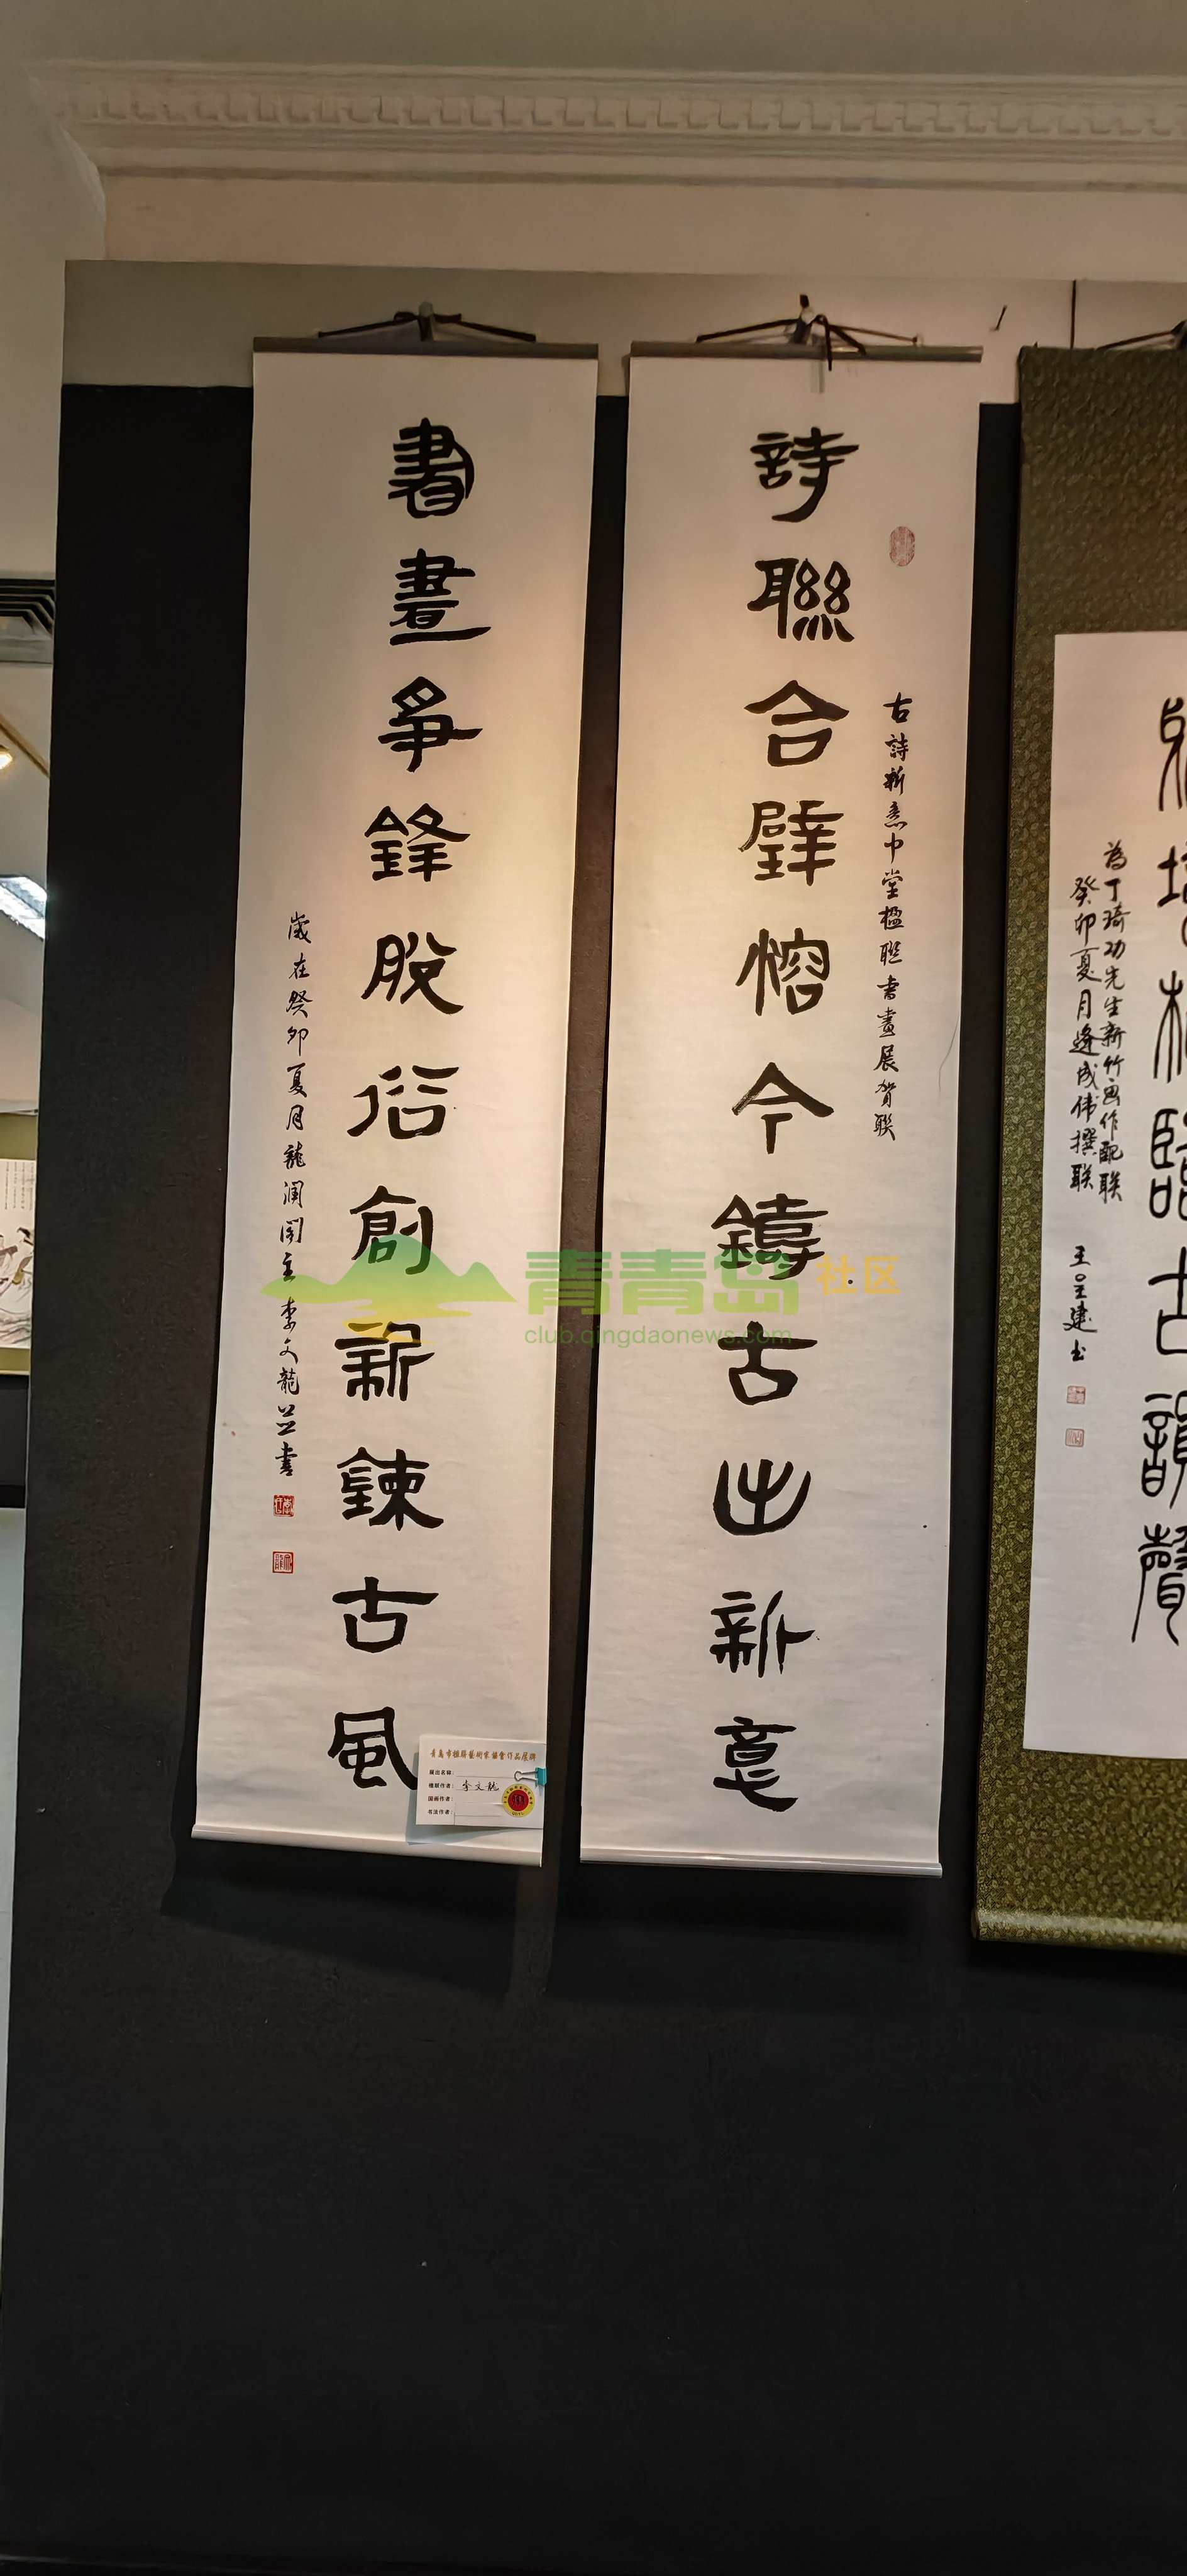 詩聯合璧熔今鑄古出新意
古詩新意中堂楹联書畫展贺联
書畫爭鋒脫俗創新鍊古風
歲在癸卯夏月龍潤閣主李文龍並書
青島市楹聯藝術家協會作品展牌
展出名称:
楹联作者: 李文龍
国画作者:
书法作者:
臨古韻聲
為丁琦功先生新竹画作配联
癸卯夏月逄成伟撰联
王呈建书
青青岛社区
club.qingdaonews.com